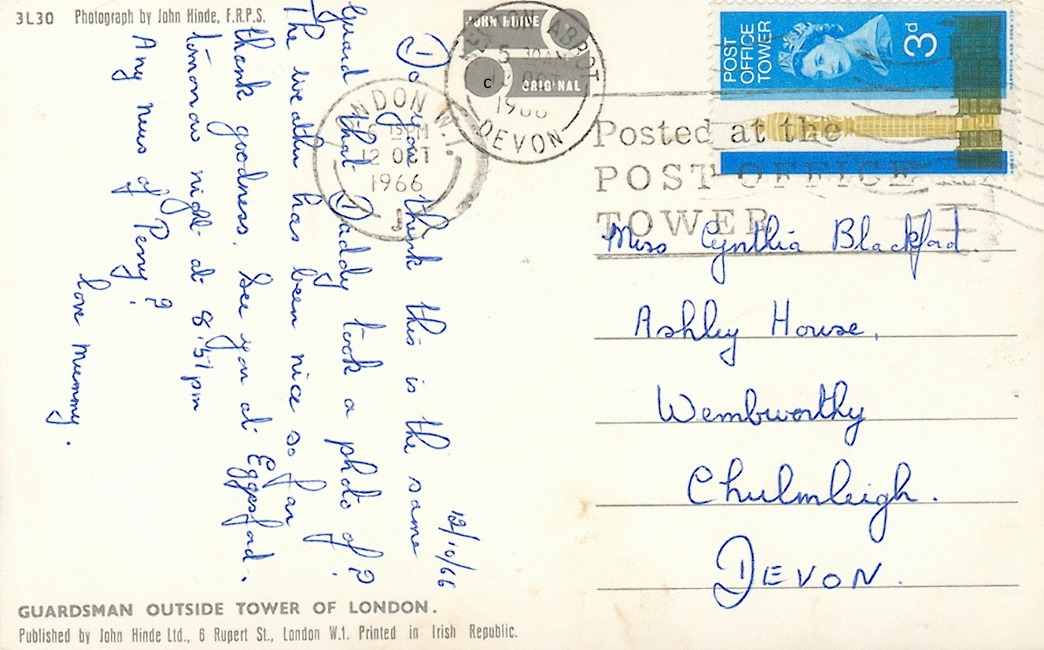 3L30 Photograph by John Hinde, F.R.P.S.
JOHN HINDE
ORIGINAL
NEWTON ABBOT
5 30AM
OCT
1966
DEVON
LONDON W.1.
6 15PM
12 OCT
1966
POST
OFFICE
TOWER
3d
Posted at the
POST OFFICE
TOWER
12/10/66
Do you think this is the same
guard that Daddy took a photo of?
The weather has been nice so far
thank goodness. See you at Eggesford.
tomorrow night at 8.51pm
Any news of Penny?
Love Mummy.
Miss Cynthia Blackford.
Ashley House,
Wembworthy
Chulmleigh.
DEVON.
GUARDSMAN OUTSIDE TOWER OF LONDON.
Published by John Hinde Ltd., 6 Rupert St., London W.1. Printed in Irish Republic.